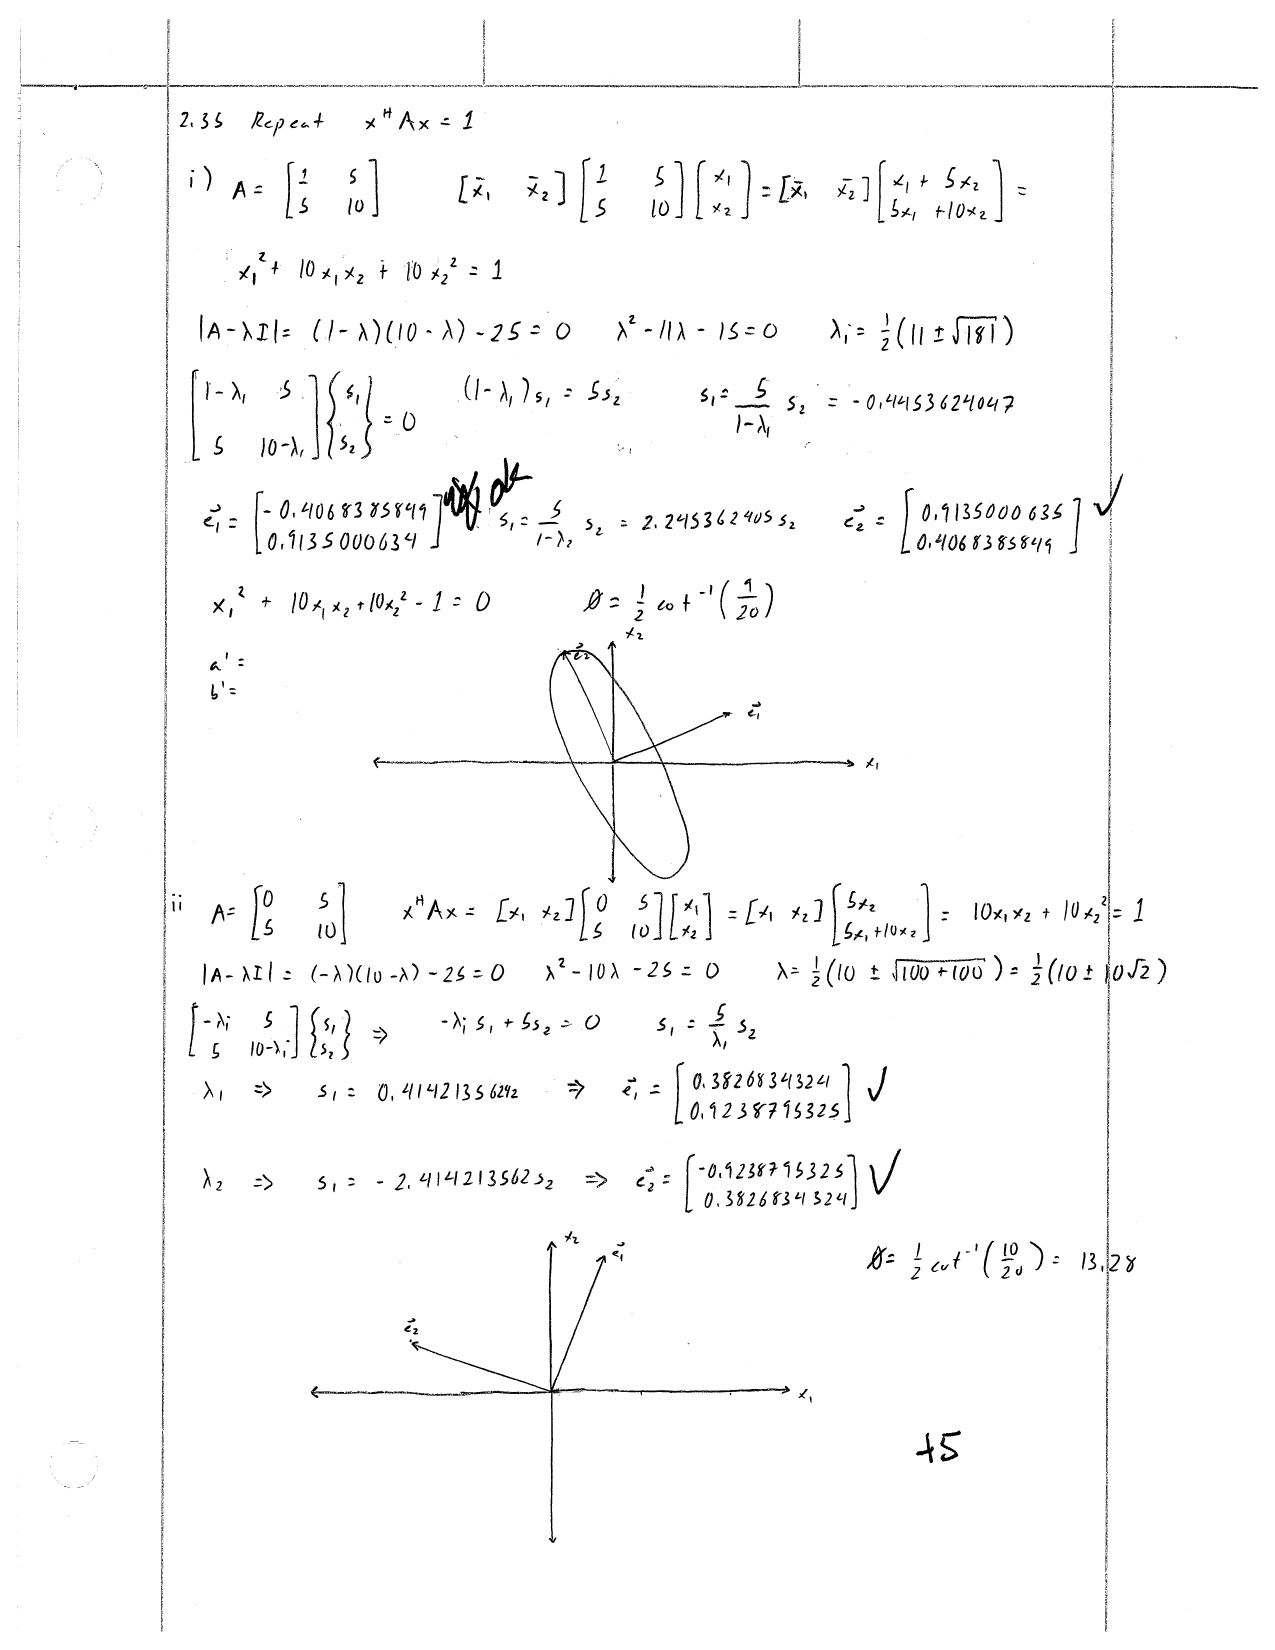 2.35 Repeat xᴴAx = 1
i) A = [1 5; 5 10] [x̄₁ x̄₂] [1 5; 5 10] [x₁; x₂] = [x̄₁ x̄₂] [x₁ + 5x₂; 5x₁ + 10x₂] =
x₁² + 10x₁x₂ + 10x₂² = 1
|A-λI| = (1-λ)(10-λ) - 25 = 0 λ² - 11λ - 15 = 0 λᵢ = ½(11 ± √181)
[1-λ₁ 5; 5 10-λ₁] {s₁; s₂} = 0 (1-λ₁)s₁ = 5s₂ s₁ = 5/(1-λ₁) s₂ = -0.4453624047
e⃗₁ = [-0.4068385849; 0.9135000634] ok s₁ = 5/(1-λ₂) s₂ = 2.245362405 s₂ e⃗₂ = [0.9135000635; 0.4068385849] ✓
x₁² + 10x₁x₂ + 10x₂² - 1 = 0 Ø = ½ cot⁻¹(9/20)
a' =
b' =
x₂
e⃗₂
e⃗₁
x₁
ii A = [0 5; 5 10] xᴴAx = [x₁ x₂] [0 5; 5 10] [x₁; x₂] = [x₁ x₂] [5x₂; 5x₁ + 10x₂] = 10x₁x₂ + 10x₂² = 1
|A-λI| = (-λ)(10-λ) - 25 = 0 λ² - 10λ - 25 = 0 λ = ½(10 ± √100+100) = ½(10 ± 10√2)
[-λᵢ 5; 5 10-λᵢ] {s₁; s₂} ⇒ -λᵢ s₁ + 5s₂ = 0 s₁ = 5/λ₁ s₂
λ₁ ⇒ s₁ = 0.4142135624 2 ⇒ e⃗₁ = [0.3826834324; 0.9238795325] ✓
λ₂ ⇒ s₁ = -2.414213562 s₂ ⇒ e⃗₂ = [-0.9238795325; 0.3826834324] ✓
x₂
e⃗₁
Ø = ½ cot⁻¹(10/20) = 13.28
e⃗₂
x₁
+5